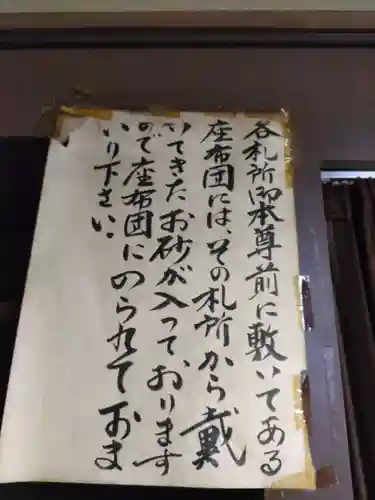 各札所御本尊前に敷いてある
座布団には、その札所から戴
いてきたお砂が入っております
ので座布団にのられておま
いり下さい。